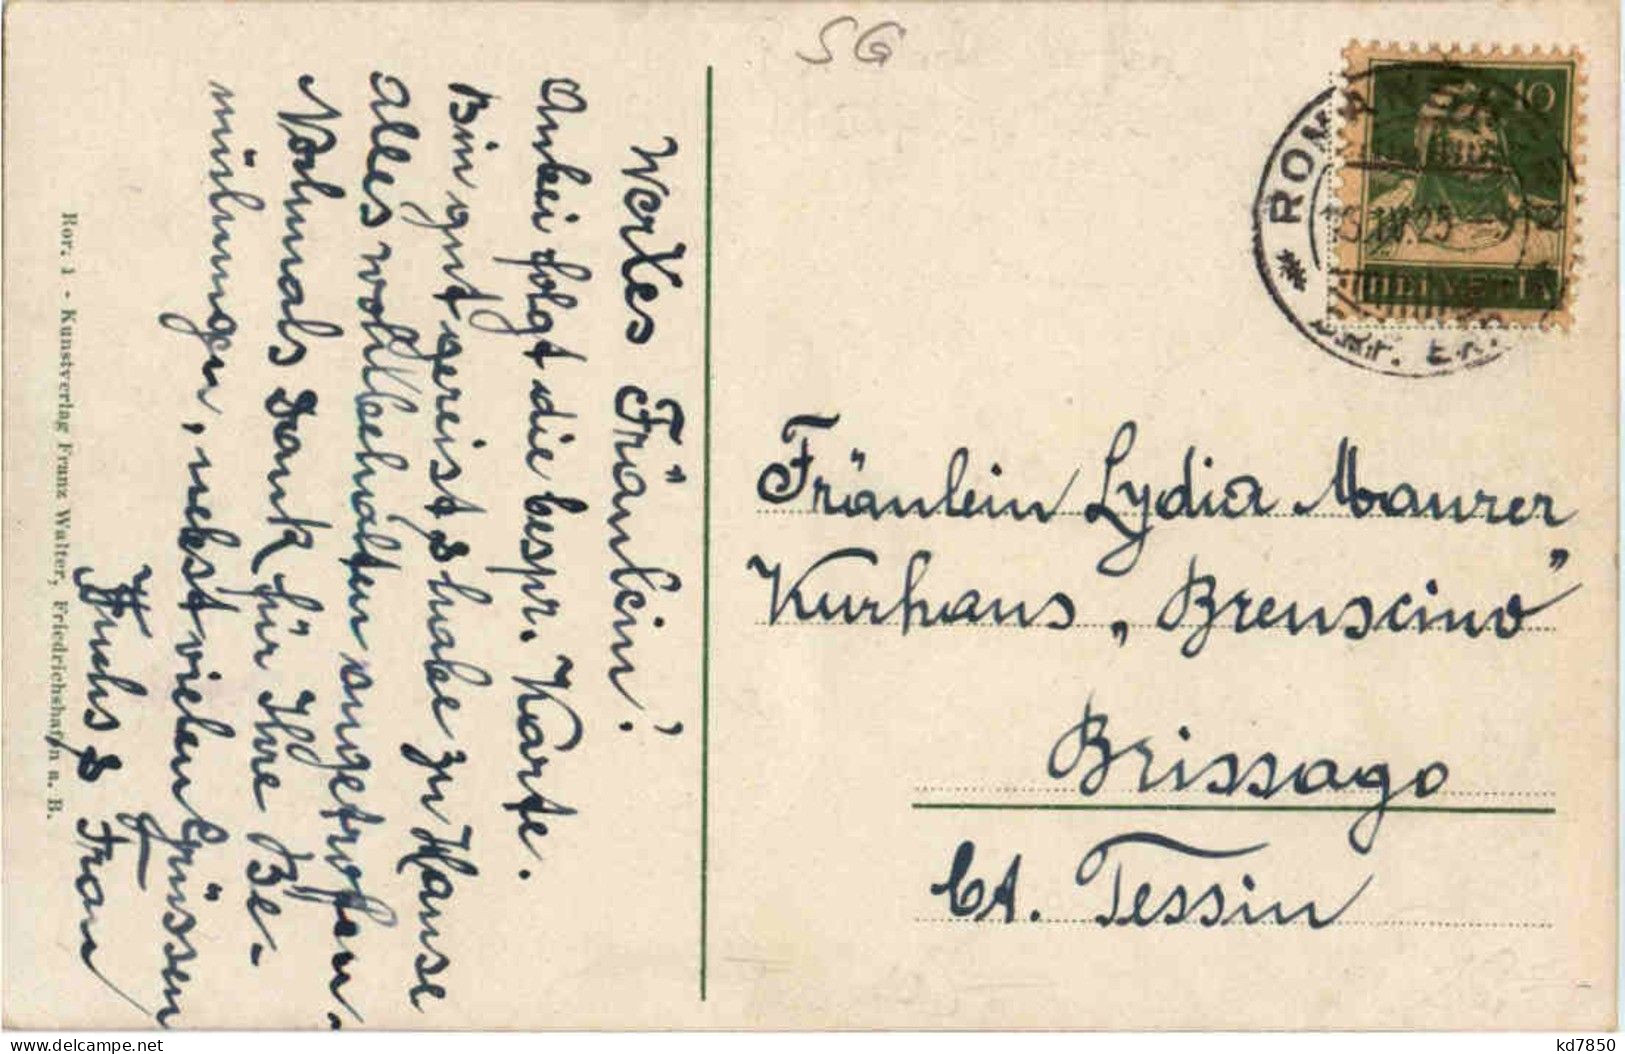 SG
Wertes Fräulein!
Anbei folgt die bespr. Karte.
Bin gut gereist & habe zu Hause
alles wohlbehalten angetroffen.
Nochmals Dank für Ihre Be-
mühungen, nebst vielen Grüssen
Fuchs & Frau
Ror. 1 - Kunstverlag Franz Walter, Friedrichshafen a. B.
ROMANSHORN
IV.25
10
HELVETIA
Fräulein Lydia Maurer
Kurhaus „Brenscino"
Brissago
Ct. Tessin
kd7850